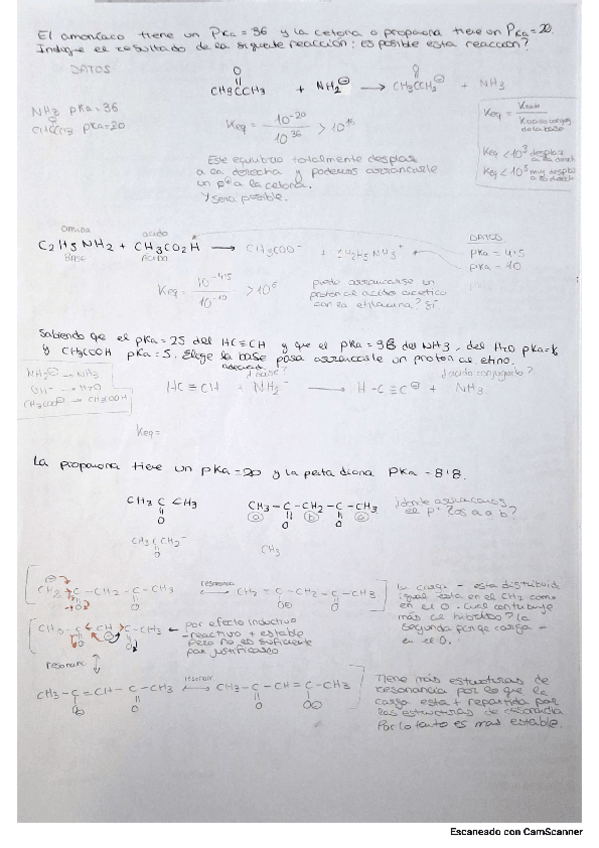 El amoníaco tiene un PKa = 36 y la cetona o propanona tiene un PKa = 20.
Indique el resultado de la siguiente reacción: es posible esta reacción?
DATOS
NH3 pKa=36
pKa=20
CH3CCH3 + NH2⊖ → CH3CCH2⊖ + NH3
O
Keq = 10^-20 / 10^-36 > 10^15
Este equilibrio totalmente desplaz
a la derecha y podemos arrancarle
un p+ a la cetona.
Y sera posible.
Keq =
amina
acido
C2H5NH2 + CH3CO2H → CH3COO- + C2H5NH3+
Base
Ácido
DATOS
pKa = 4.5
pKa = 10
Keq = 10^-4.5 / 10^-10 > 10^5
puede arrancarse un
proton al acido acetico
con la etilamina? Sí
Sabiendo que el pKa=25 del HC≡CH y que el pKa=36 del NH3, del H2O
y CH3COOH pKa=5. Elige la base para arrancarle un proton al etino.
adecuada
NH2⊖ → NH3
OH- → H2O
CH3COO⊖ → CH3COOH
¿base?
¿acido conjugado?
HC≡CH + NH2- → H-C≡C⊖ + NH3
Keq=
La propanona tiene un pKa=20 y la pentadiona pKa = 8'8.
CH3 C CH3
O
CH3-C-CH2-C-CH3
a b c
O O
¿donde arrancarias
el p+ los a o b?
CH3CCH2-
CH3
resonancia
CH2 = C-CH2-C-CH3
La carga - esta distribuida
igual esta en el CH2 como
en el O. Cual contribuye
más al hibrido? la
segunda porque carga -
en el O.
← por efecto inductivo
-reactivo + estable
pero no es suficiente
par justificarlo
resonanc
CH3-C=CH-C-CH3 ↔ CH3-C-CH=C-CH3
Tiene más estructuras de
resonancia por lo que la
carga esta + repartida por
las estructuras de resonancia
Por lo tanto es mas estable.
Escaneado con CamScanner